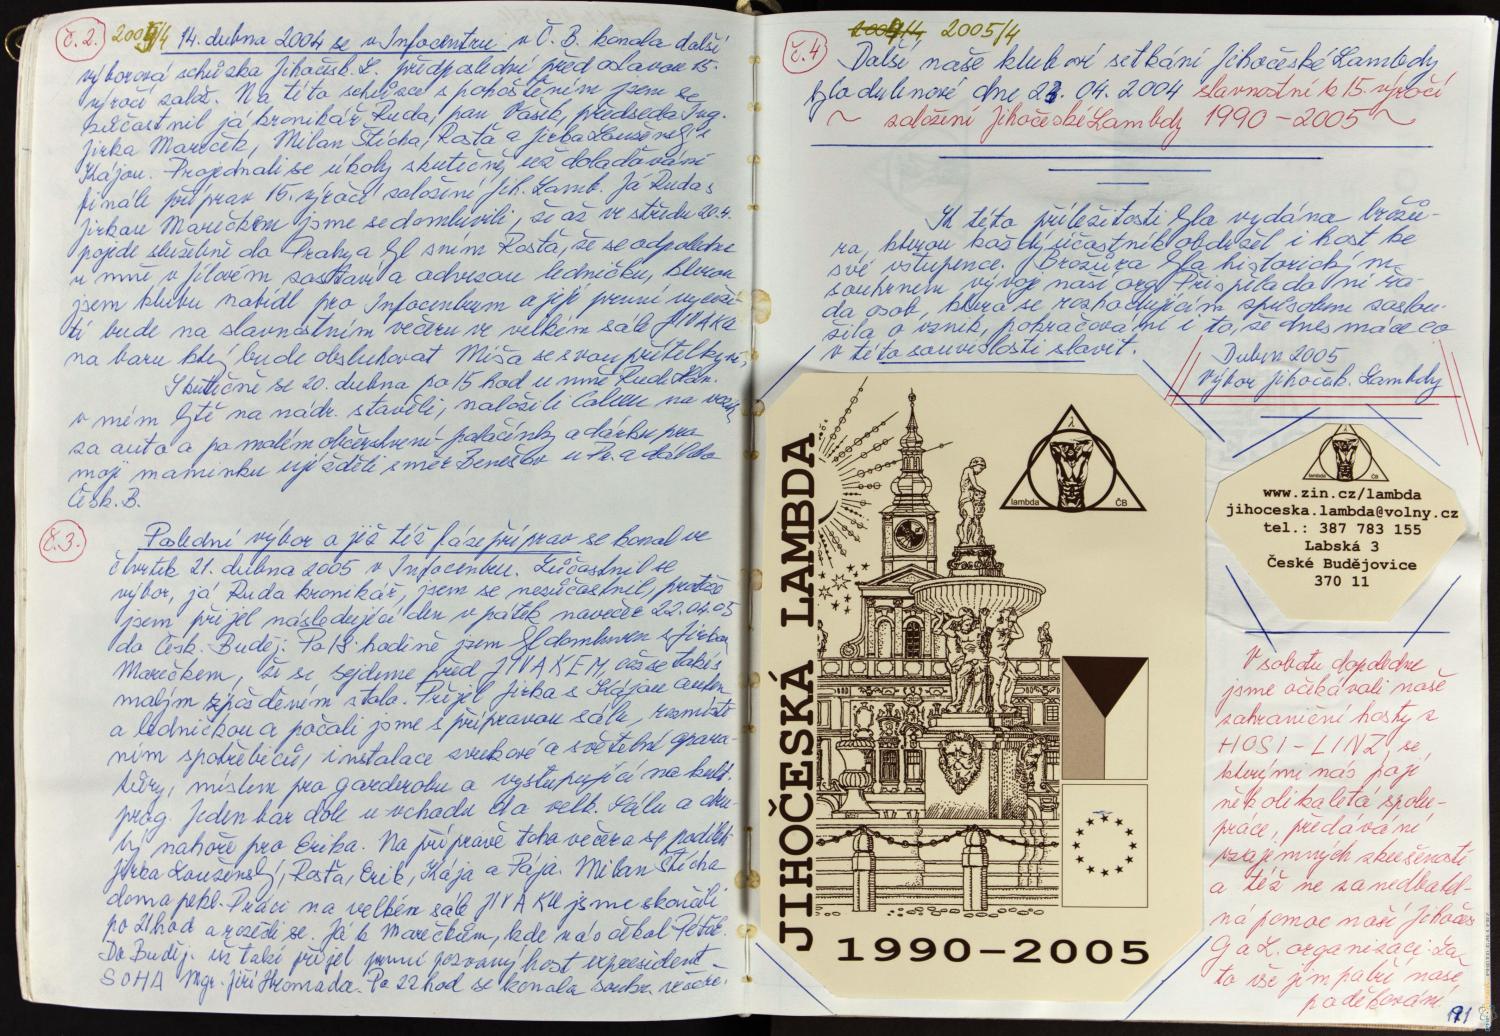 č. 2. 2005/4 14. dubna 2004 se v Infocentru v Č. B. konala další
výborová schůzka Jihočesk. L. předposlední před oslavou 15.
výročí založ. Na této schůzce s pohoštěním jsem se
zúčastnil já kronikář Ruda, pan Vašík, předseda Ing.
Jirka Mareček, Milan Štícha, Rosťa a Jirka Louženský
Kájou. Projednali se úkoly skutečně už dolaďování
finále příprav 15. výročí založení Jih. Lamb. Já Ruda s
Jirkou Marečkem jsme se domluvili, že až ve středu 20.4.
pojede služebně do Prahy a s ním Rosťa, že se odpoledne
u mně v Jílovém zastaví a odvezou ledničku, kterou
jsem klubu nabídl pro Infocentrum a její první využi-
tí bude na slavnostním večeru ve velkém sále JIVAKu
na baru který bude obsluhovat Míša se svou přítelkyní,
Skutečně se 20. dubna po 15 hod u mně Rudi
v mém bytě na nádr. stavěli, naložili
za auto a po malém občerstvení - palačinky a dárku pro
moji maminku ujížděli směr Benešov u Pr. a
Česk. B.
č. 3. Poslední výbor a již též fáze příprav se konal ve
čtvrtek 21. dubna 2005 v Infocentru. Zúčastnil se
výbor, já Ruda kronikář, jsem se nezúčastnil, protože
jsem přijel následující den v pátek navečer 22.04.05
do Česk. Buděj. Po 18. hodině jsem byl domluven s Jirkou
Marečkem, že se sejdeme před JIVAKEM, což se také s
malým zpožděním stalo. Přijel Jirka s Kájou autem
a ledničkou a počali jsme s přípravou sálu, rozmístě-
ním spotřebičů, instalace zvukové a světelné apara-
tury, místem pro garderobu a vystupující na kult.
prog. Jeden bar dole u vchodu do velk. sálu a dru-
hý nahoře pro Erika. Na přípravě toho večera se podíleli
Jirka Louženský, Rosťa, Erik, Kája a Pája. Milan Štícha
doma pekl. Práci na velkém sále JIVAKU jsme skončili
po 21 hod a rozešli se. Já k Marečkům, kde nás čekal Péťa.
Do Buděj. už také přijel první pozvaný host expresident
SOHA Mgr. Jiří Hromada. Po 22 hod se konala soukr. večeře.
č. 4 2004/4 2005/4
Další naše klubové setkání Jihočeské Lambdy
bylo dubnové dne 23. 04. 2004 slavnostní k 15. výročí
~ založení Jihočeské Lambdy 1990 – 2005 ~
K této příležitosti byla vydána brožů-
ra, kterou každý účastník obdržel i host ke
své vstupence. Brožůra byla historickým
souhrnem vývoje naší org. Přispěla do ní řa-
da osob, která se rozhodujícím způsobem zaslou-
žila o vznik, pokračování i to, že dnes máme co
v této souvislosti slavit.
Duben 2005
Výbor Jihoček. Lambdy
JIHOČESKÁ LAMBDA
λ
lambda ČB
1990–2005
λ
lambda ČB
www.zin.cz/lambda
jihoceska.lambda@volny.cz
tel.: 387 783 155
Labská 3
České Budějovice
370 11
V sobotu dopoledne
jsme očekávali naše
zahraniční hosty z
HOSI – LINZ, se
kterými nás pojí
několikaletá spolu-
práce, předávání
vzájemných zkušeností
a též ne zanedbatel-
ná pomoc naší Jihočes
G a L. organizaci. Za
to vše jim patří naše
poděkování
191